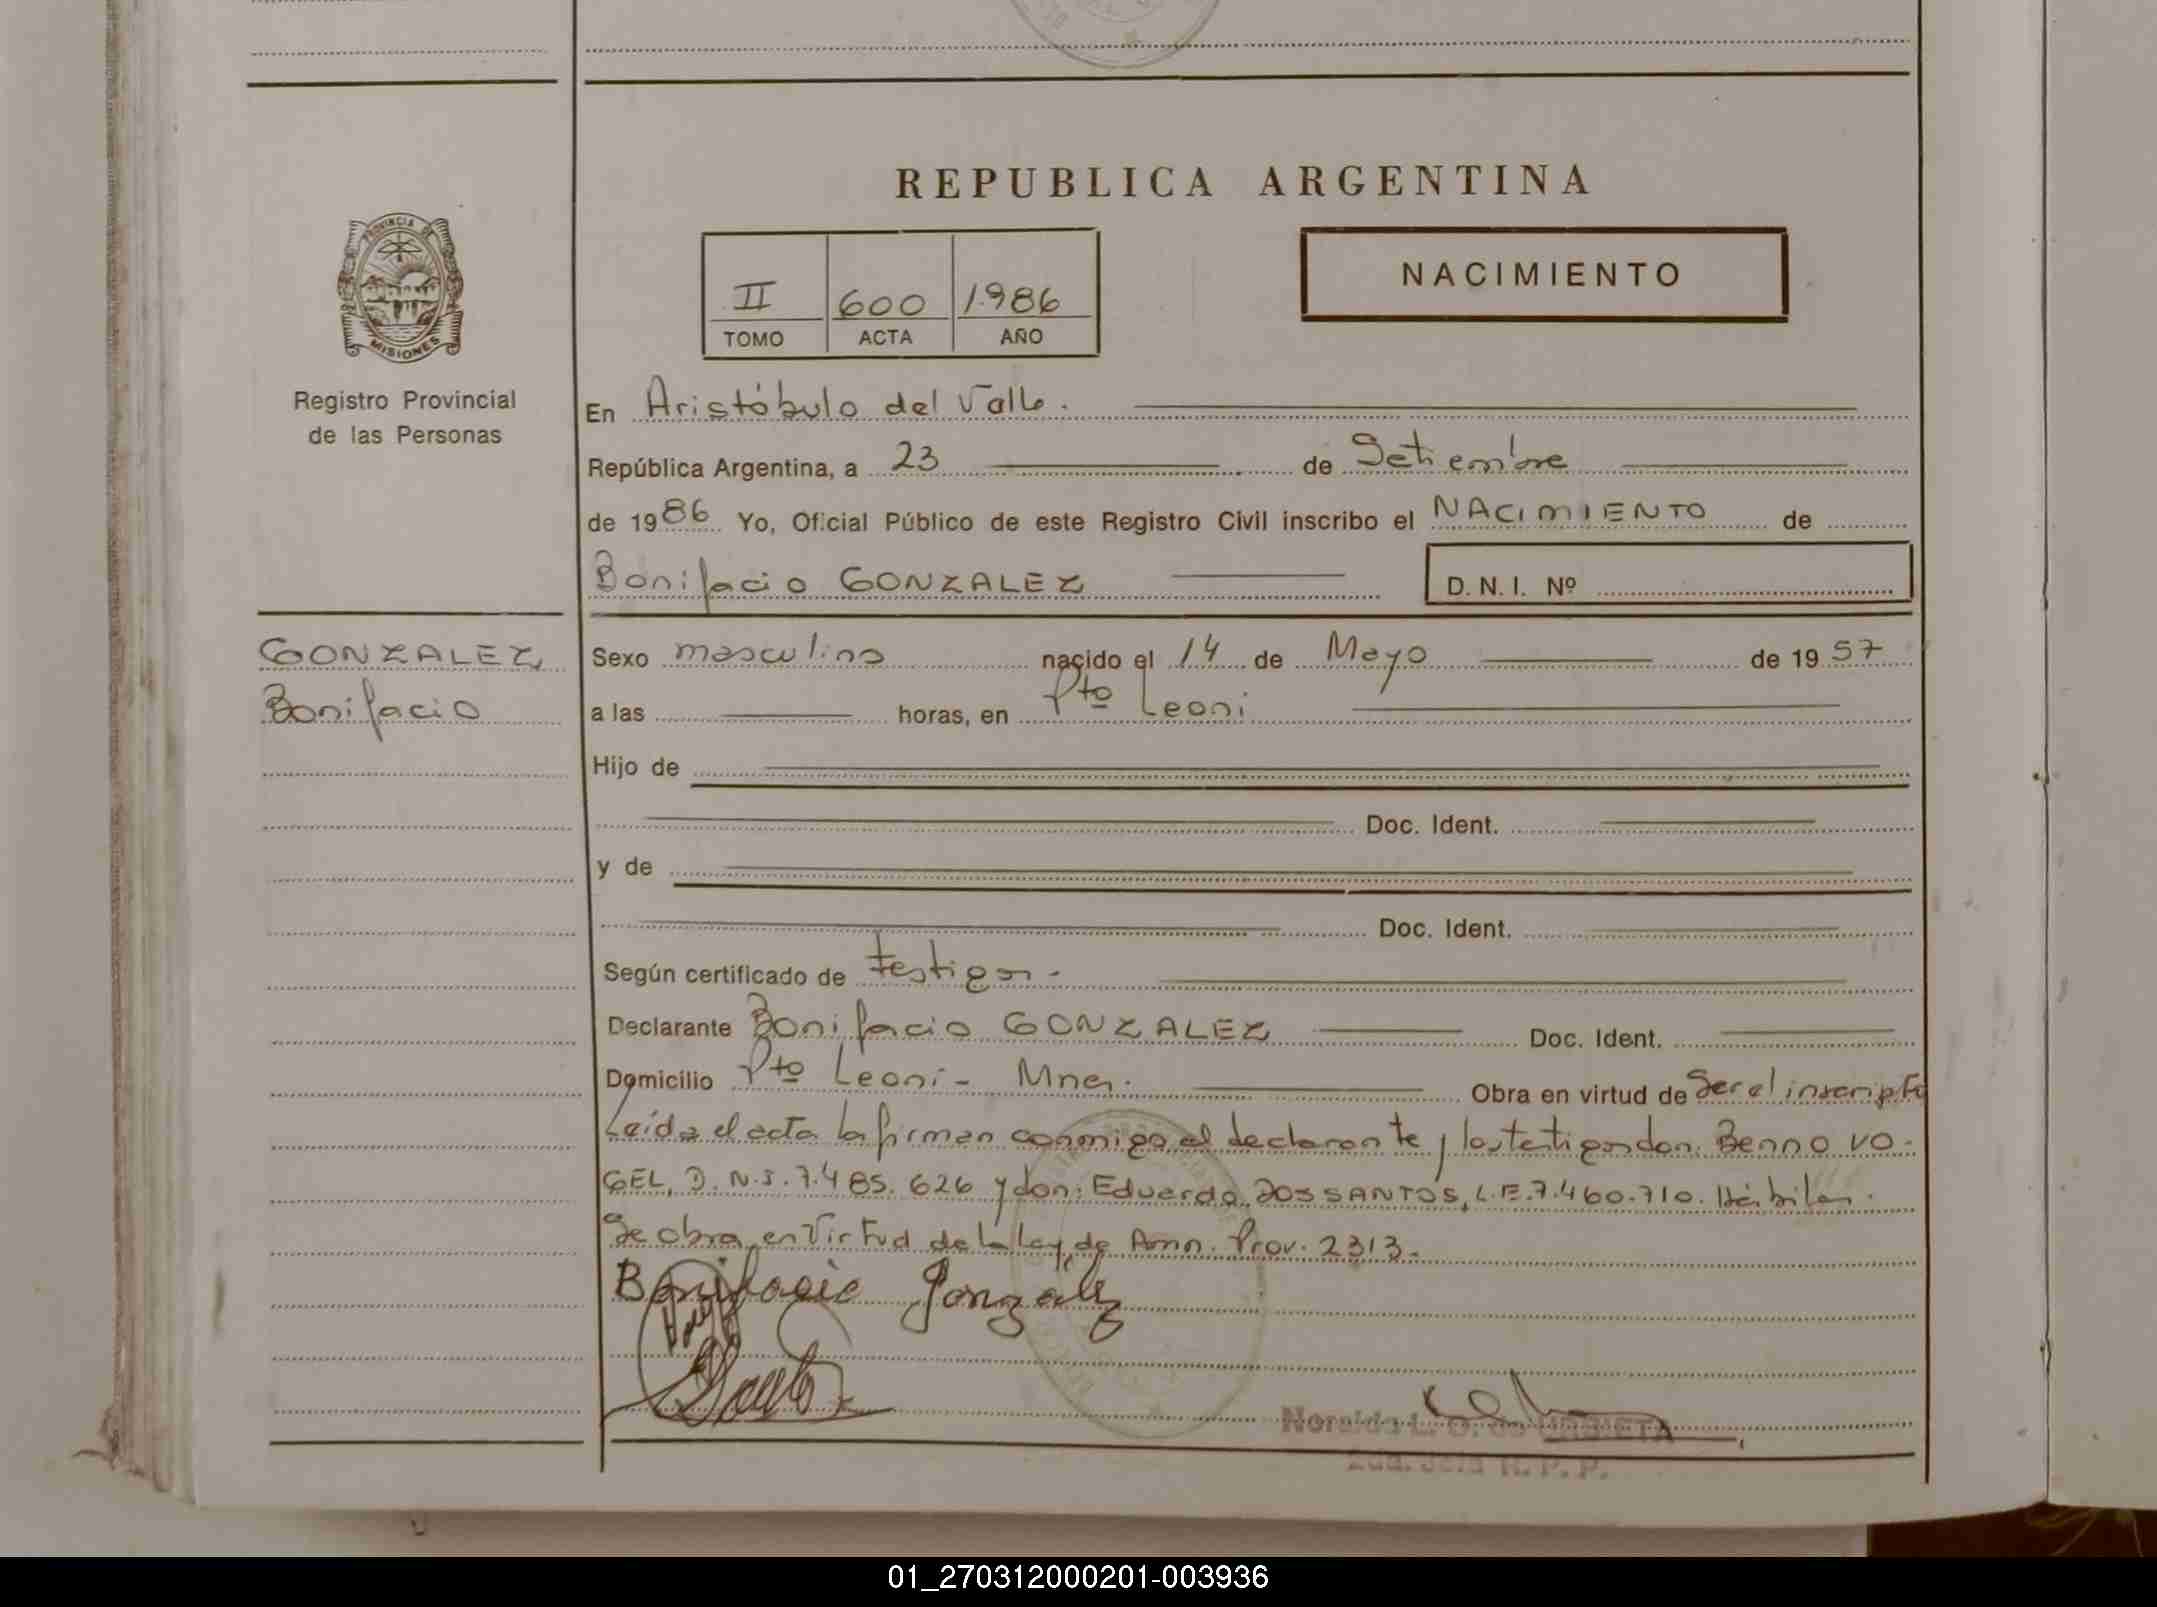 REPUBLICA ARGENTINA
NACIMIENTO
II 600 1986
TOMO ACTA AÑO
PROVINCIA DE
MISIONES
Registro Provincial
de las Personas
En Aristóbulo del Valle.
República Argentina, a 23 de Setiembre
de 1986 Yo, Oficial Público de este Registro Civil inscribo el NACIMIENTO de
Bonifacio GONZALEZ D. N. I. Nº
GONZALEZ,
Bonifacio
Sexo masculino nacido el 14 de Mayo de 1957
a las horas, en Pto Leoni
Hijo de
Doc. Ident.
y de
Doc. Ident.
Según certificado de testigos.
Declarante Bonifacio GONZALEZ Doc. Ident.
Domicilio Pto Leoni - Mnes. Obra en virtud de Ser el inscripto
Leída el acta la firman conmigo el declarante y los testigos don: Benno VO-
GEL, D.N.I. 7.485.626 y don: Eduardo DOS SANTOS, L.E. 7.460.710. Hábiles.
Se obra en Virtud de la Ley de Amn. Prov. 2313.
Bonifacio Gonzalez
Noraida L. O. de URBIETA
2da. Jefa R. P. P.
01_270312000201-003936